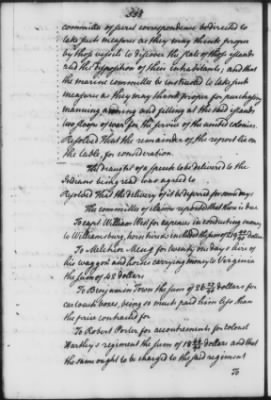 committee of secret correspondence be directed to
take such measures as they may think proper
by those vessels to discover the state of those islands
and the disposition of their inhabitants, and that
the marine committee be instructed to take such
measures as they may think proper for purchasing
manning arming and fitting at the said islands
two sloops of war for the service of the united colonies.
Resolved That the remainder of the report lie on
the table for consideration.
The draught of a speech to be delivered to the
Indians being read was agreed to
Resolved That the delivery of it be deferred for some days
The committee of claims reported that there is due
To capt William West for expences in conducting money
to Williamsburg, horse hire &c included the sum of dollars
To Melchior Meng for twenty one days hire of
his waggon and horses carrying money to Virginia
the sum of 42 dollars
To Benjamin Town the sum of dollars for
cartouch boxes, being so much paid him less than
the price contracted for
To Robert Porter for accoutrements for colonel
Hartley's regiment the sum of dollars and that
the same ought to be charged to the said regiment
To